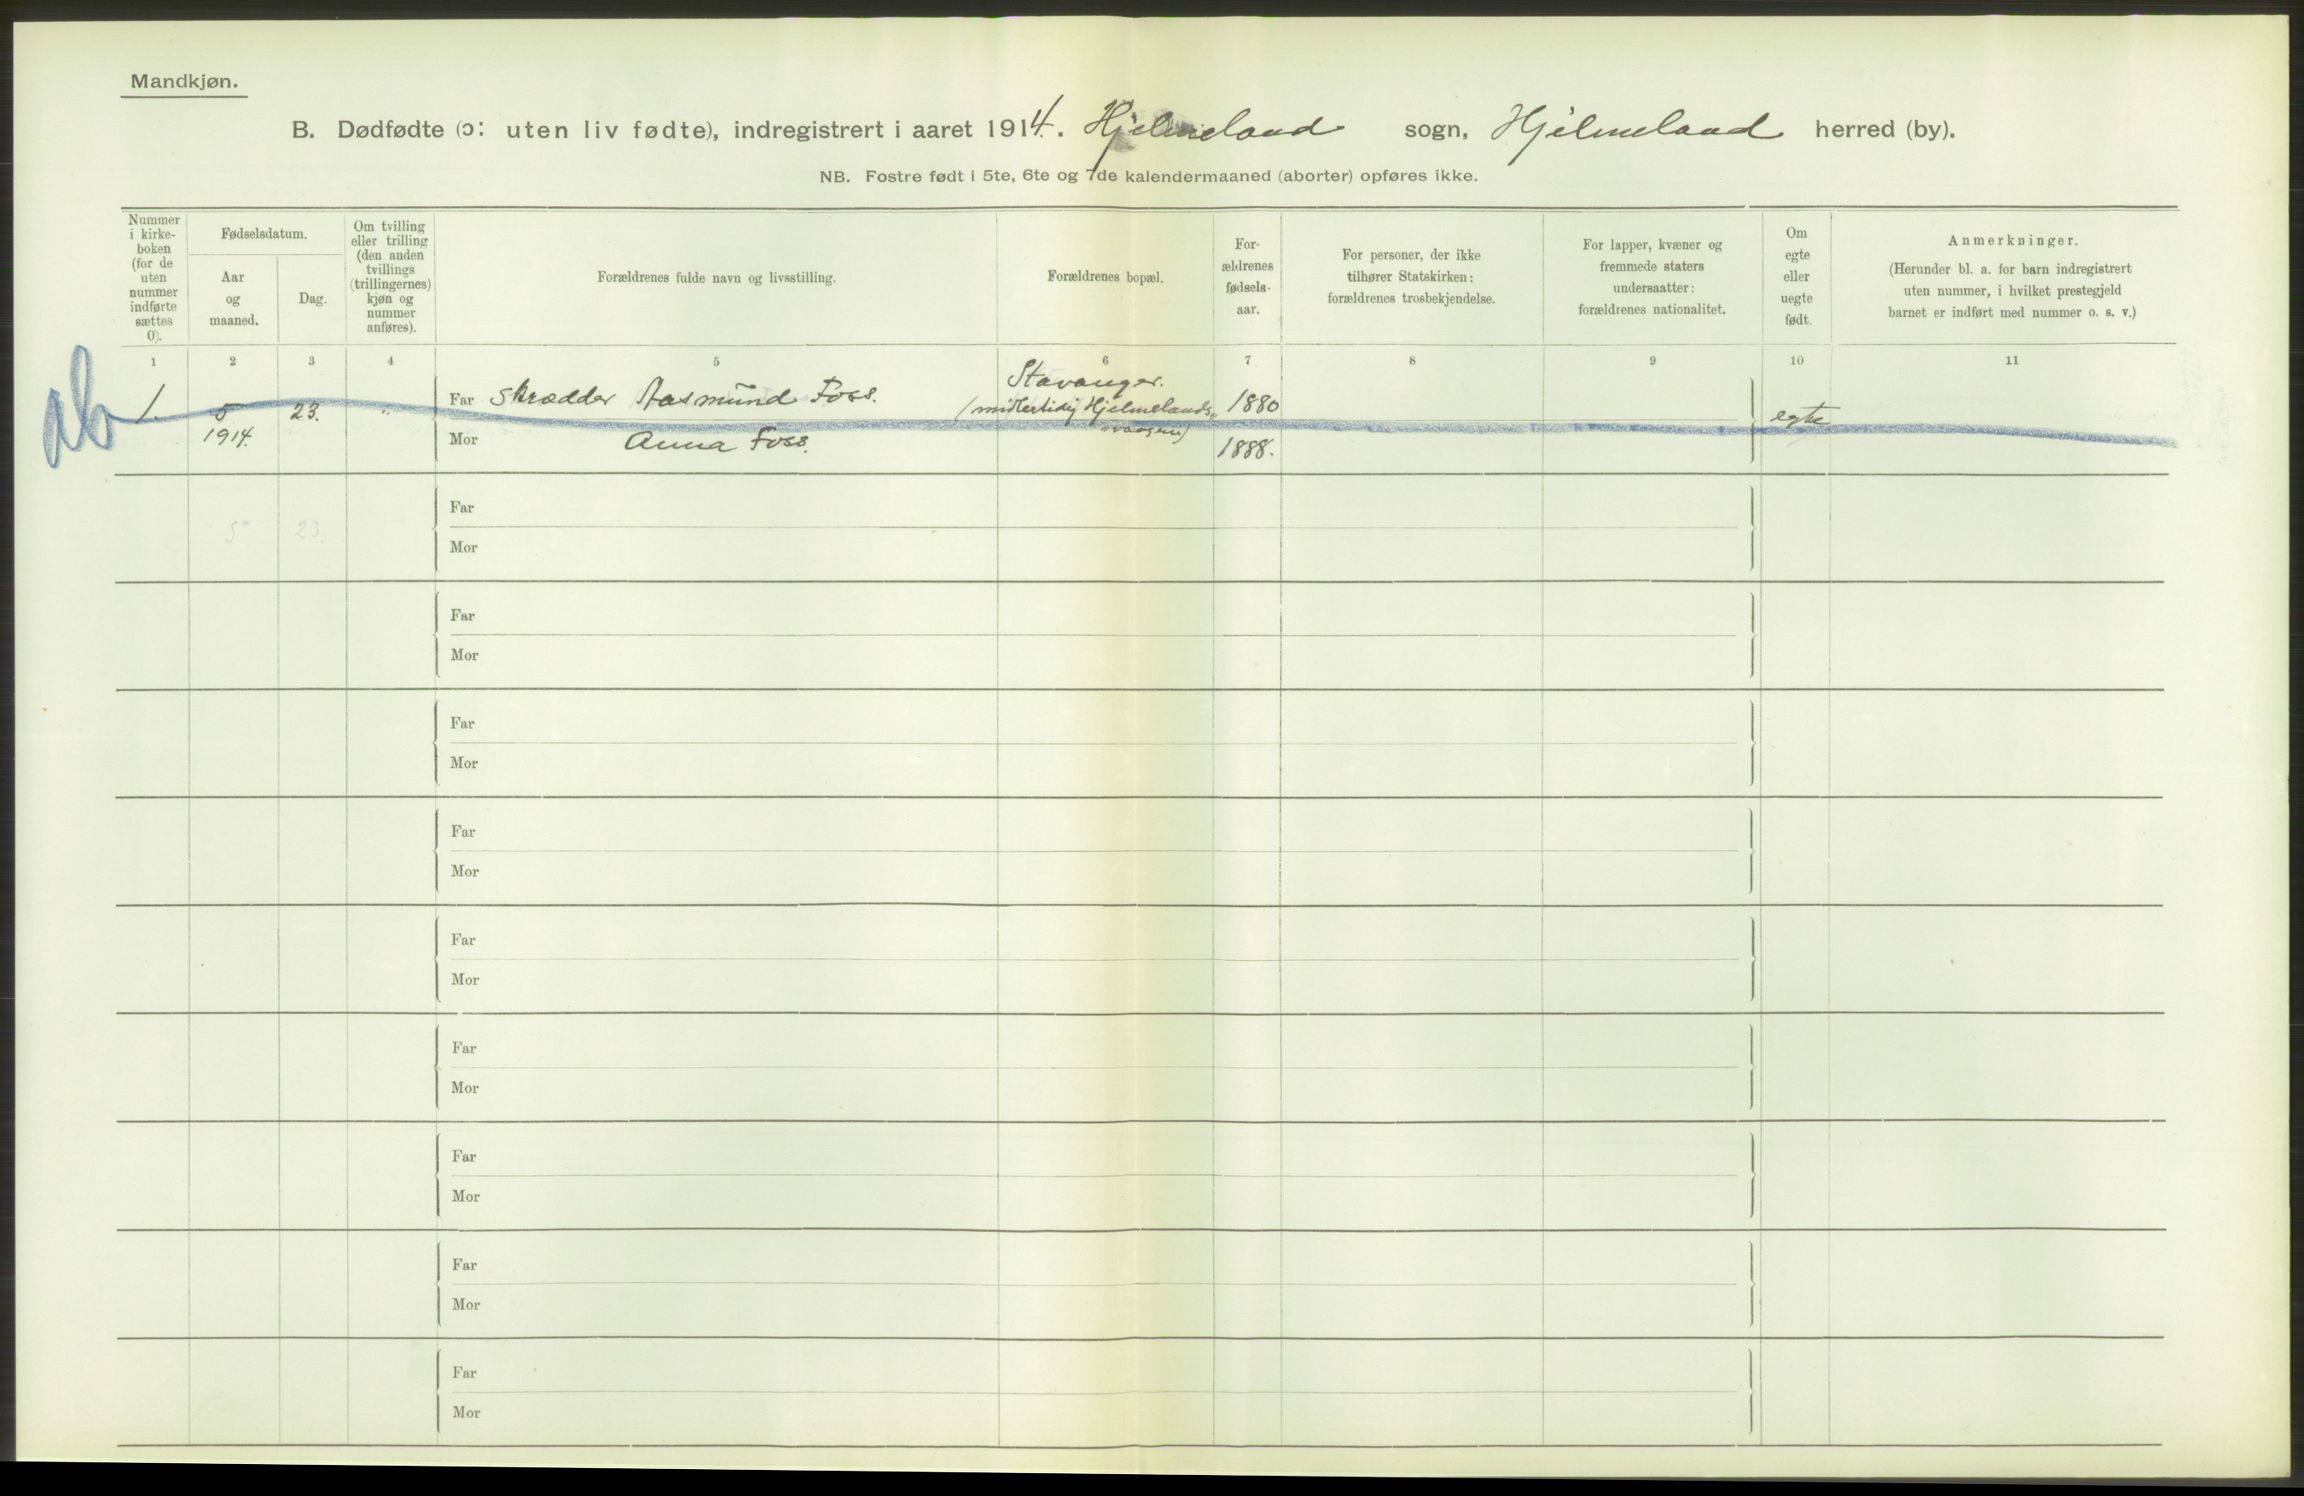 Mandkjøn.
B. Dødfødte (ɔ: uten liv fødte), indregistrert i aaret 1914. Hjelmeland sogn, Hjelmeland herred (by).
NB. Fostre født i 5te, 6te og 7de kalendermaaned (aborter) opføres ikke.
Nummer
i kirke-
boken
(for de
uten
nummer
indførte
sættes
0).
Fødselsdatum.
Aar
og
maaned.
Dag.
Om tvilling
eller trilling
(den anden
tvillings
(trillingernes)
kjøn og
nummer
anføres).
Forældrenes fulde navn og livsstilling.
Forældrenes bopæl.
For-
ældrenes
fødsels-
aar.
For personer, der ikke
tilhører Statskirken:
forældrenes trosbekjendelse.
For lapper, kvæner og
fremmede staters
undersaatter:
forældrenes nationalitet.
Om
egte
eller
uegte
født.
Anmerkninger.
(Herunder bl. a. for barn indregistrert
uten nummer, i hvilket prestegjeld
barnet er indført med nummer o. s. v.)
1 2 3 4 5 6 7 8 9 10 11
ab
1. 5 23. " Far Skrædder Aasmund Foss. Stavanger. 1880 egte
(midlertidig Hjelmelands„
"vaagen)
1914. Mor Anna Foss. 1888.
Far
5 23.
Mor
Far
Mor
Far
Mor
Far
Mor
Far
Mor
Far
Mor
Far
Mor
Far
Mor
Far
Mor